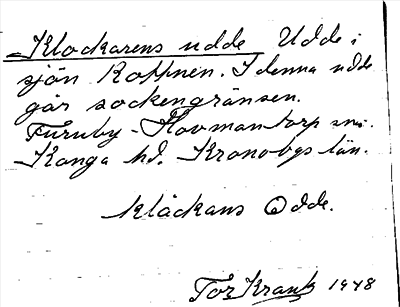 Klockarens udde Udde i
sjön Koppnen. I denna udde
går sockengränsen.
Furuby - Hovmantorp snr.
Konga hd. Kronobgs län.
klåckans Odde.
Tor Krantz 1948